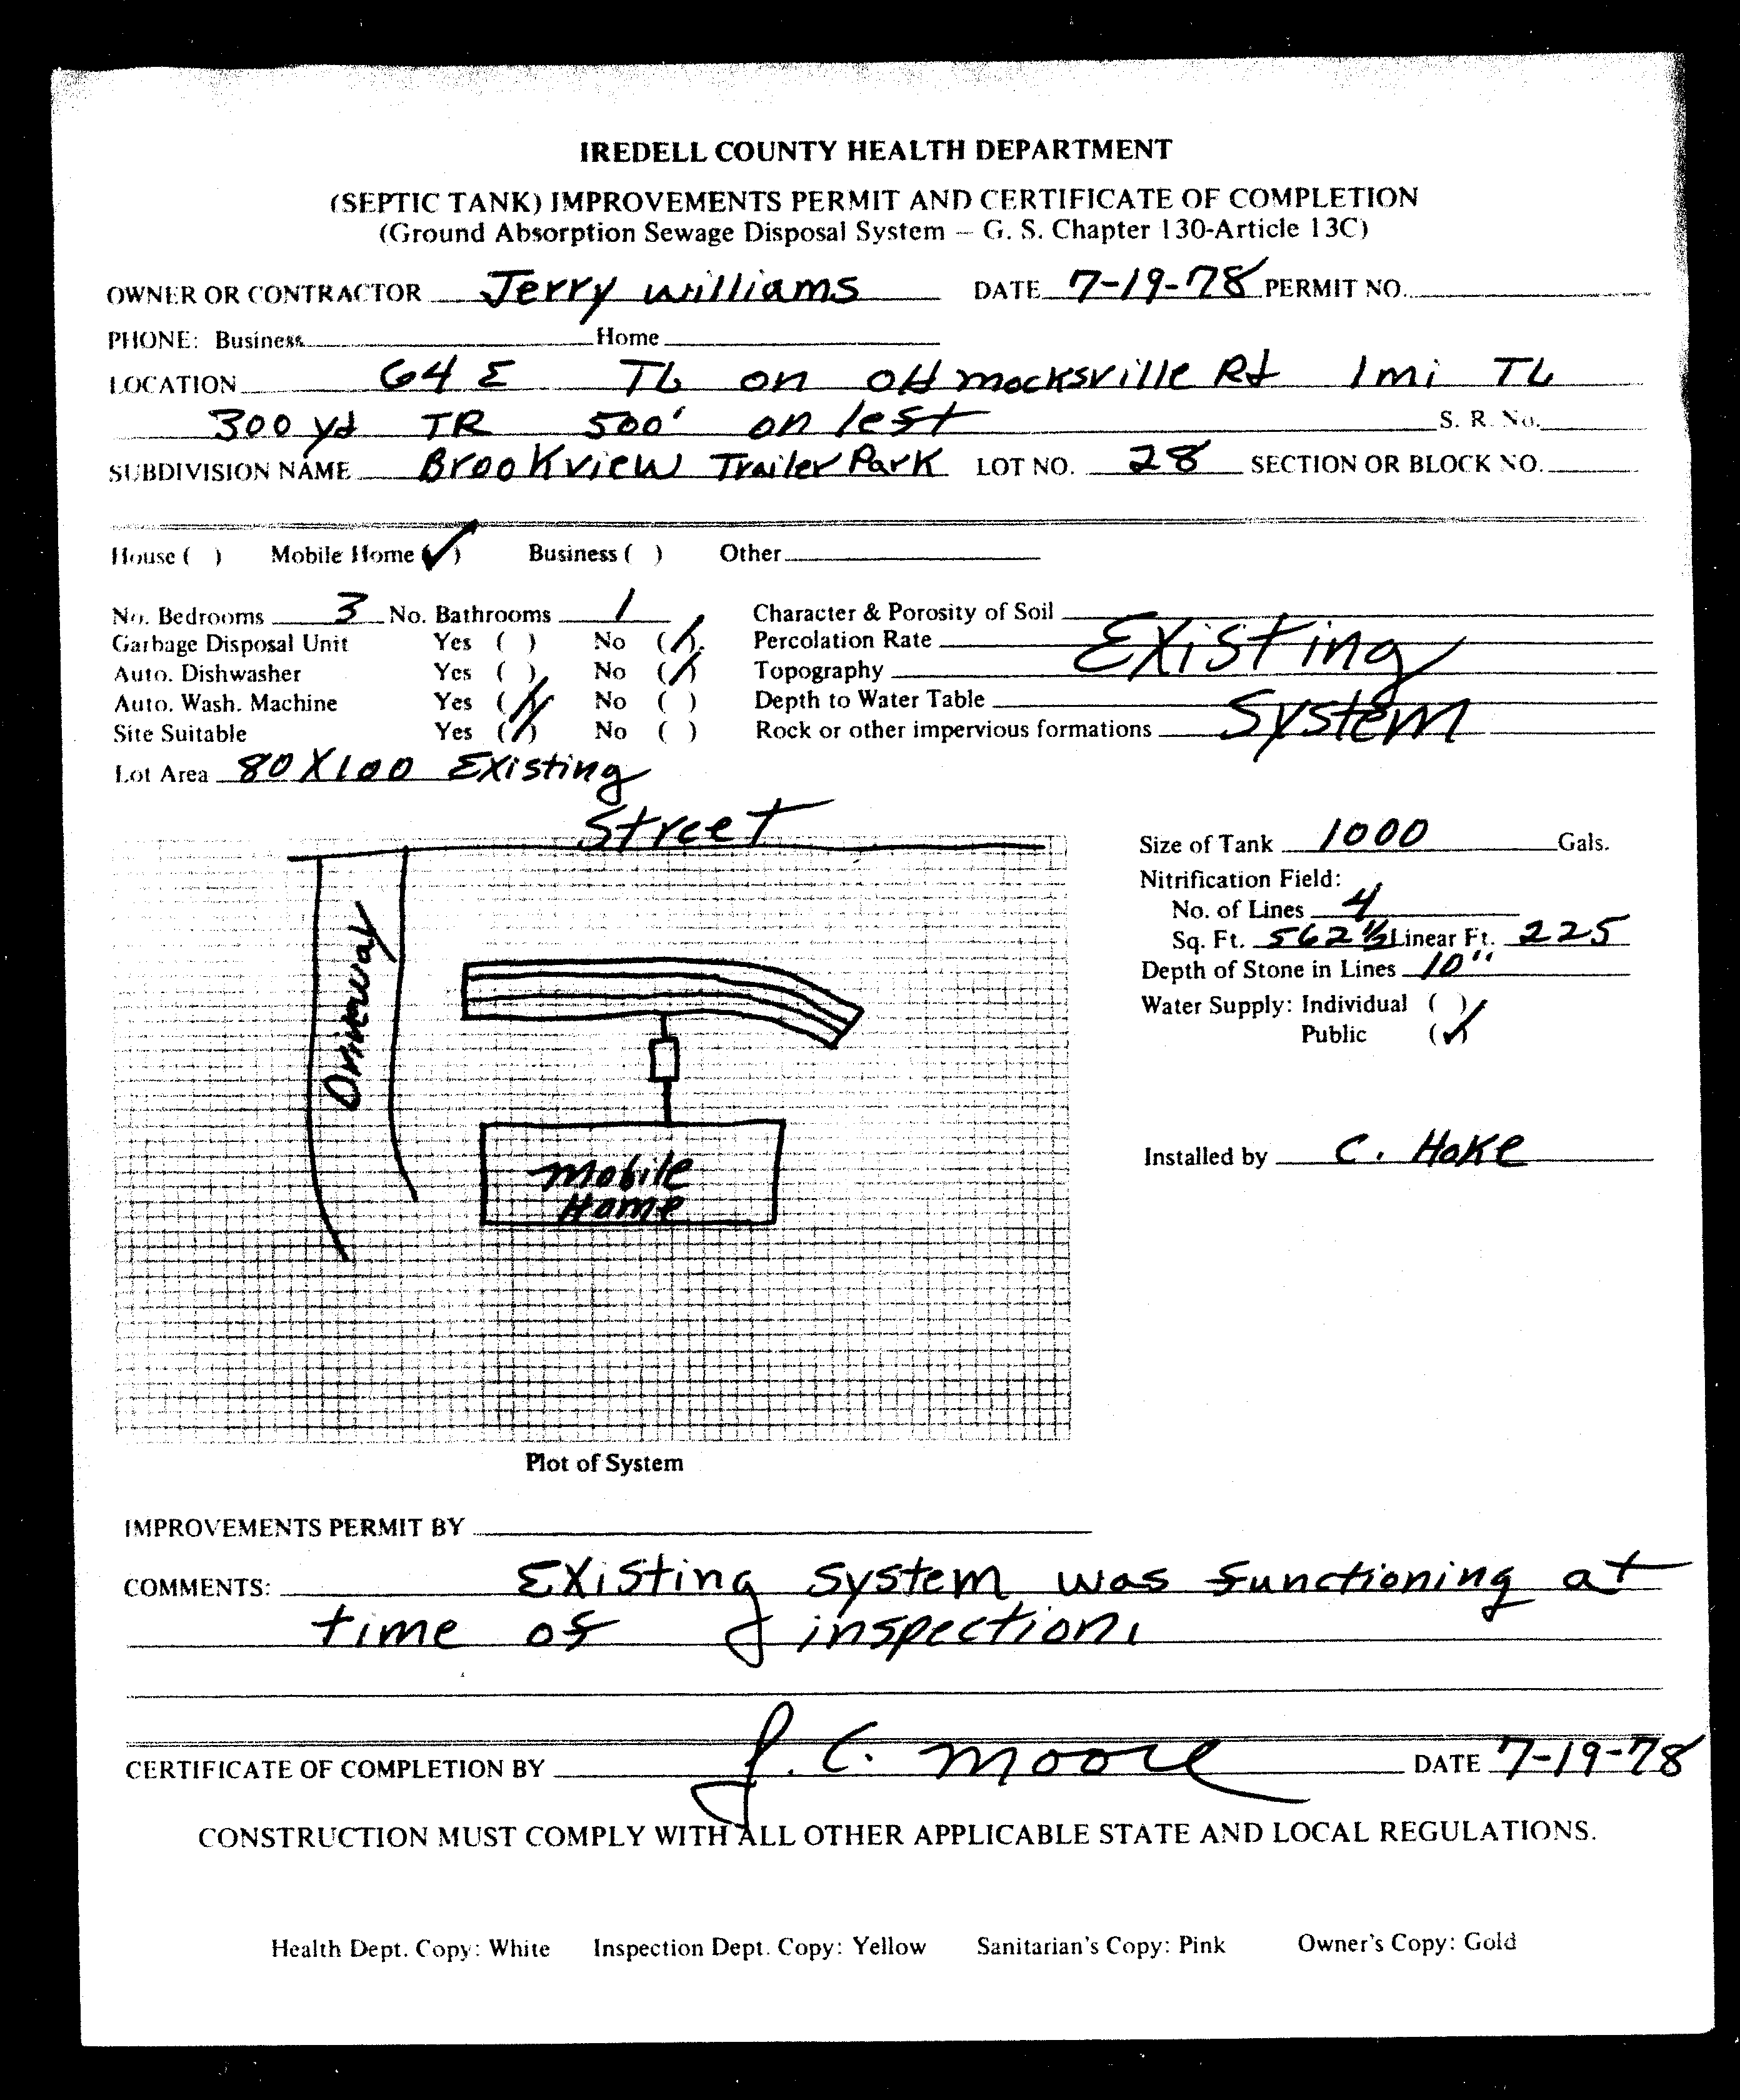 IREDELL COUNTY HEALTH DEPARTMENT
(SEPTIC TANK) IMPROVEMENTS PERMIT AND CERTIFICATE OF COMPLETION
(Ground Absorption Sewage Disposal System — G. S. Chapter 130-Article 13C)
OWNER OR CONTRACTOR Jerry williams DATE 7-19-78 PERMIT NO.
PHONE: Business Home
LOCATION 64 E TL on old mocksville Rd 1 mi TL
300 yd TR 500' on left S. R. No.
SUBDIVISION NAME Brookview Trailer Park LOT NO. 28 SECTION OR BLOCK NO.
House ( ) Mobile Home (✓) Business ( ) Other
No. Bedrooms 3 No. Bathrooms 1 Character & Porosity of Soil
Garbage Disposal Unit Yes ( ) No (✓) Percolation Rate Existing
Auto. Dishwasher Yes ( ) No (✓) Topography
Auto. Wash. Machine Yes (✓) No ( ) Depth to Water Table System
Site Suitable Yes (✓) No ( ) Rock or other impervious formations
Lot Area 80 X 100 Existing
Street
Driveway
Mobile
Home
Size of Tank 1000 Gals.
Nitrification Field:
No. of Lines 4
Sq. Ft. 562 1/2 Linear Ft. 225
Depth of Stone in Lines 10"
Water Supply: Individual ( )
Public (✓)
Installed by C. Hoke
Plot of System
IMPROVEMENTS PERMIT BY
COMMENTS: Existing system was functioning at
time of inspection.
CERTIFICATE OF COMPLETION BY J. C. Moore DATE 7-19-78
CONSTRUCTION MUST COMPLY WITH ALL OTHER APPLICABLE STATE AND LOCAL REGULATIONS.
Health Dept. Copy: White Inspection Dept. Copy: Yellow Sanitarian's Copy: Pink Owner's Copy: Gold